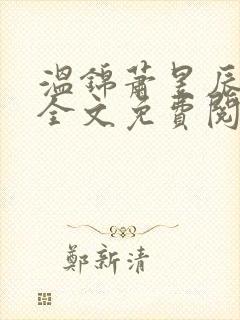 溫錦蕭昱辰
全文免費閱
鄭新清